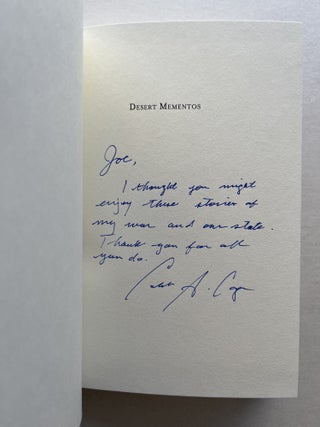 DESERT MEMENTOS
Joe,
I thought you might
enjoy these stories of
my war and our state.
Thank you for all
you do.
Caleb S. Cage